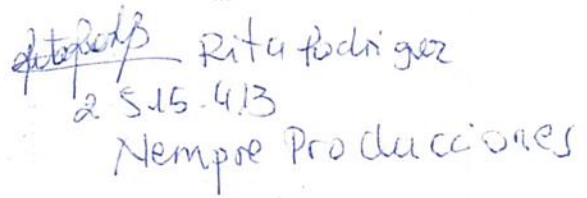 Rita Rodriguez
2.515.413
Nempre Producciones